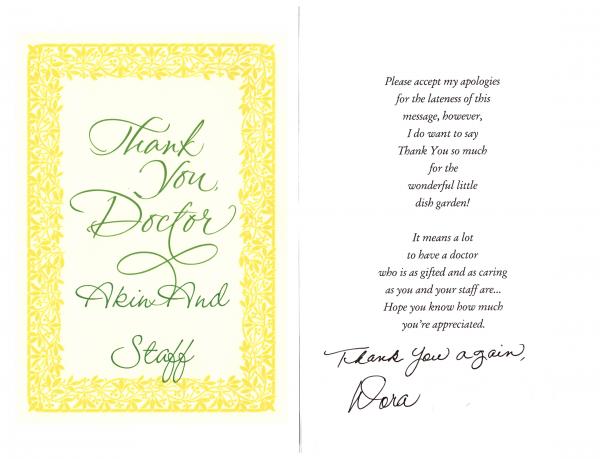 Thank
You,
Doctor
Akin And
Staff
Please accept my apologies
for the lateness of this
message, however,
I do want to say
Thank You so much
for the
wonderful little
dish garden!
It means a lot
to have a doctor
who is as gifted and as caring
as you and your staff are...
Hope you know how much
you're appreciated.
Thank you again,
Dora